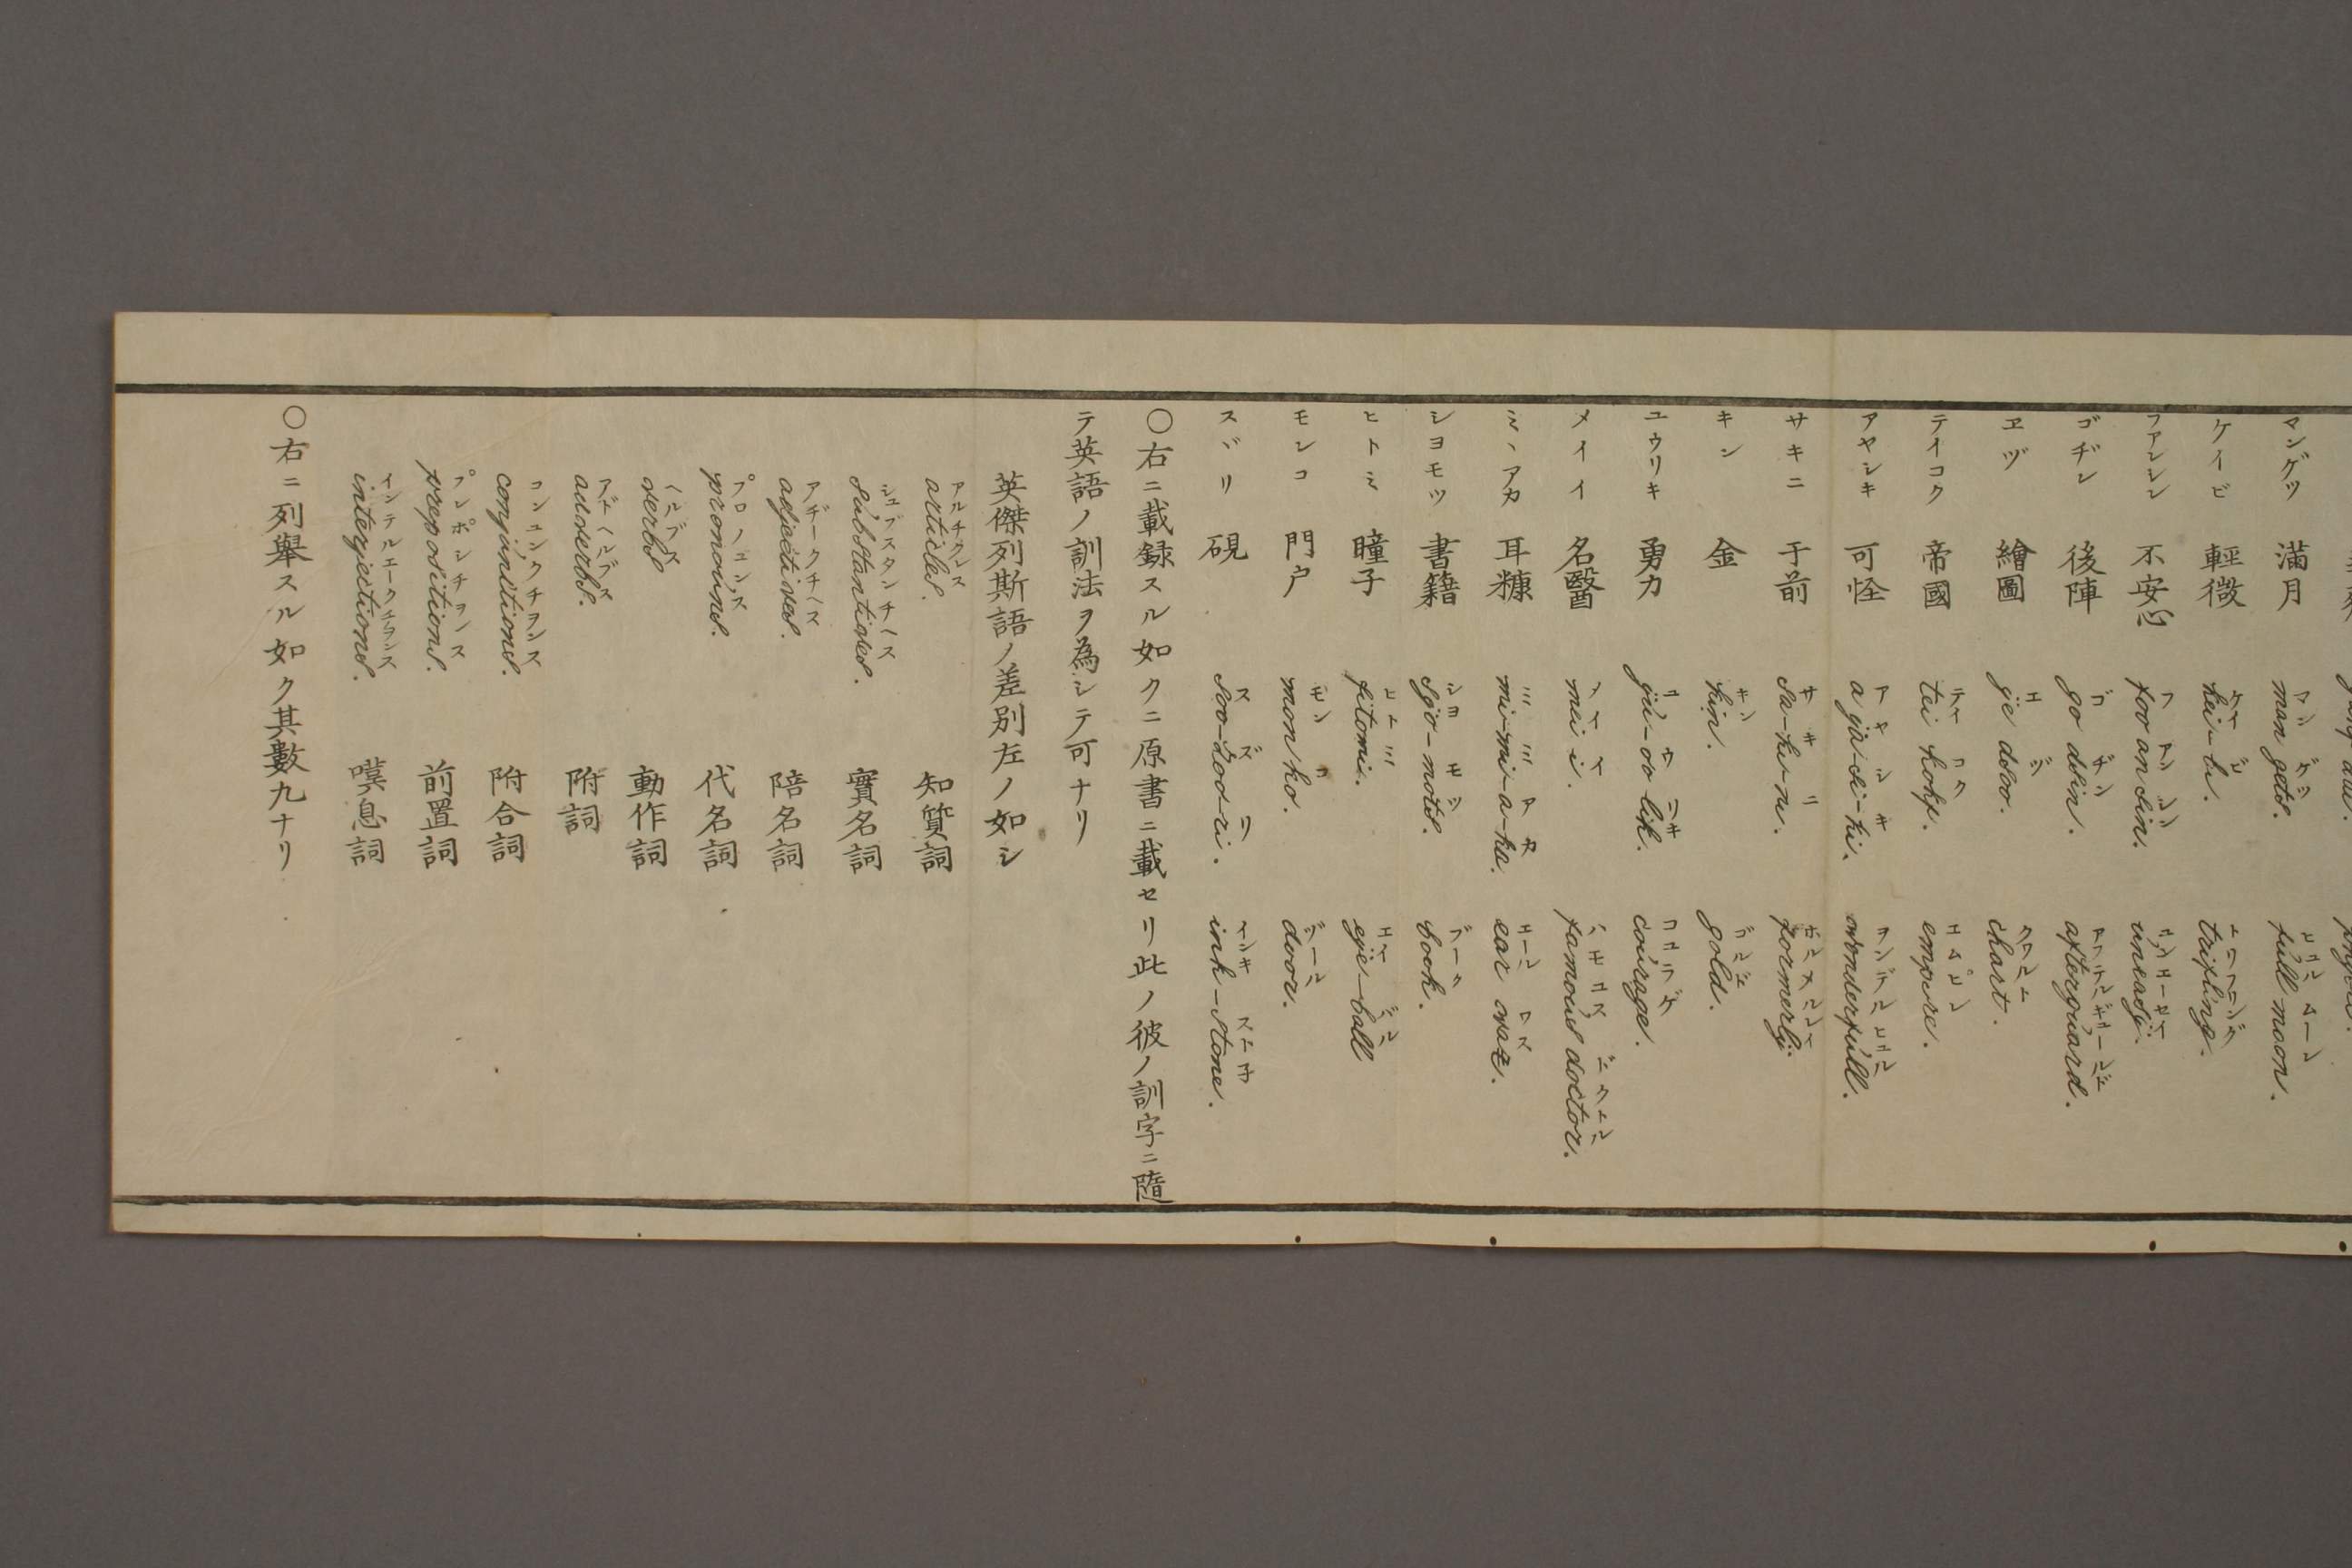 マンゲツ 滿月 man gets. マンゲツ full moon. ヒュルムーン
ケイビ 輕微 kei-bi. ケイビ trifling. トリフリング
フアンシン 不安心 foo an sin. フアンシン uneasy. ユンエーセイ
ゴヂン 後陣 go dsin. ゴヂン afterguard.
ヱヅ 繪圖 ÿe dsoo. エヅ chart. クワルト
テイコク 帝國 tei kokf. テイコク empire. エムピレ
アヤシキ 可怪 a ÿa-si-ki. アヤシキ wonderfull. ヲンデルヒュル
サキニ 于前 sa-ki-ni. サキニ formerlÿ. ホルメルレイ
キン 金 kin. キン gold. ゴルド
ユウリキ 勇力 ÿu-oo-lik. ユウリキ courage. コユラゲ
メイイ 名醫 mei i. メイイ famous doctor. ハモユス ドクトル
ミヽアカ 耳糠 mi-mi-a-ka. ミミアカ ear wax. エール ワス
シヨモツ 書籍 sÿo-mots. シヨモツ book. ブーク
ヒトミ 瞳子 fitomi. ヒトミ eÿe-ball エイ バル
モンコ 門戸 mon ko. モンコ door. ドール
スヾリ 硯 soo-dsoo-ri. スズリ ink-stone. インキ ストヲ子
〇右ニ載録スル如クニ原書ニ載セリ此ノ彼ノ訓字ニ隨
テ英語ノ訓法ヲ為シテ可ナリ
英傑列斯語ノ差別左ノ如シ
アルチクレス articles. 知質詞
シュブスタンチーハス substantives. 實名詞
アヂークチーハス adjectives. 陪名詞
プロノユンス pronouns. 代名詞
ヘルブス verbs 動作詞
アドヘルブス adverbs. 附詞
コンユンクチヲンス conjunctions. 附合詞
プレポシチヲンス prepositions. 前置詞
インテルエークチヲンス interjections. 嘆息詞
〇右ニ列舉スル如ク其數九ナリ